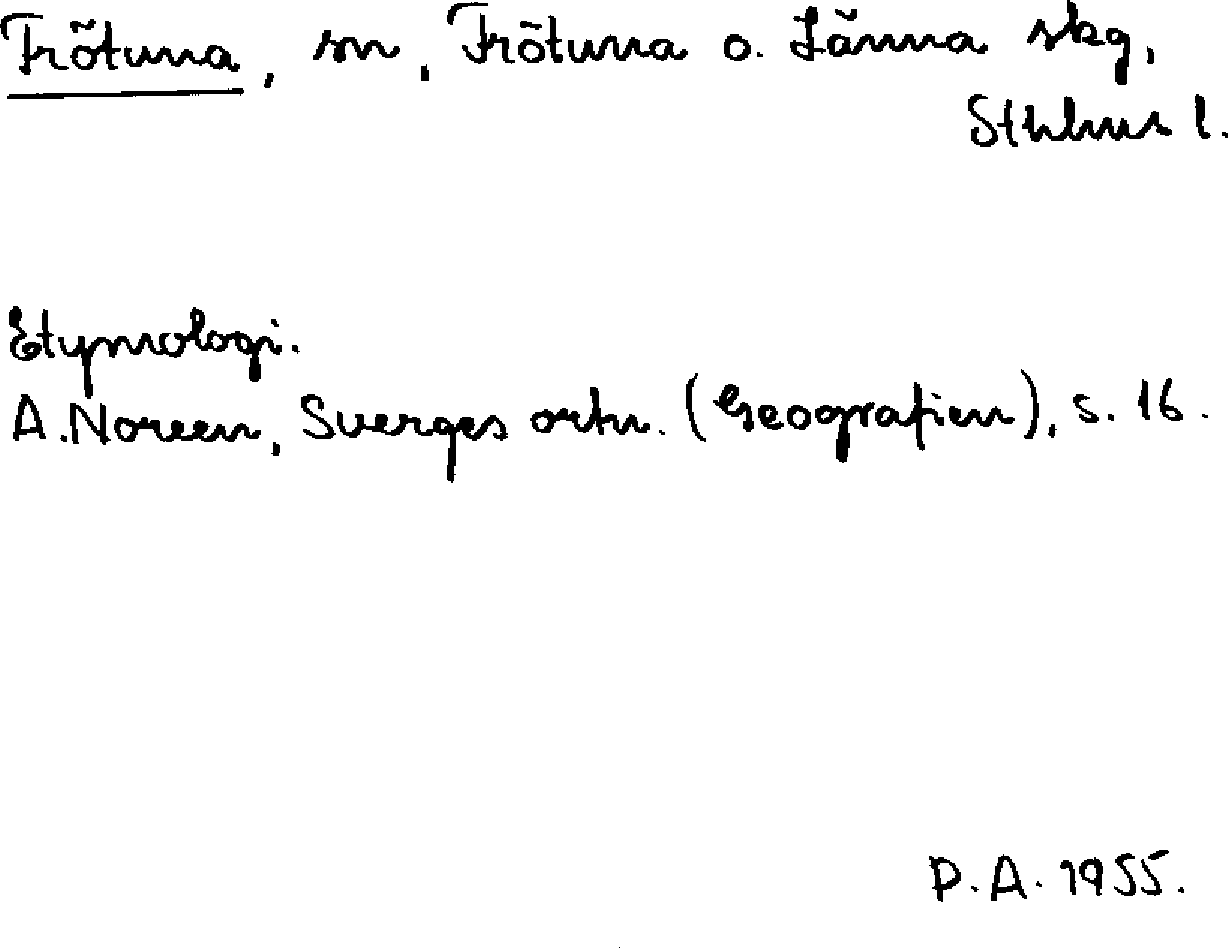 Frötuna, sn, Frötuna o. Länna skg,
Sthlms l.
Etymologi.
A. Noreen, Sverges ortn. (Geografien), s. 16.
P.A. 1955.